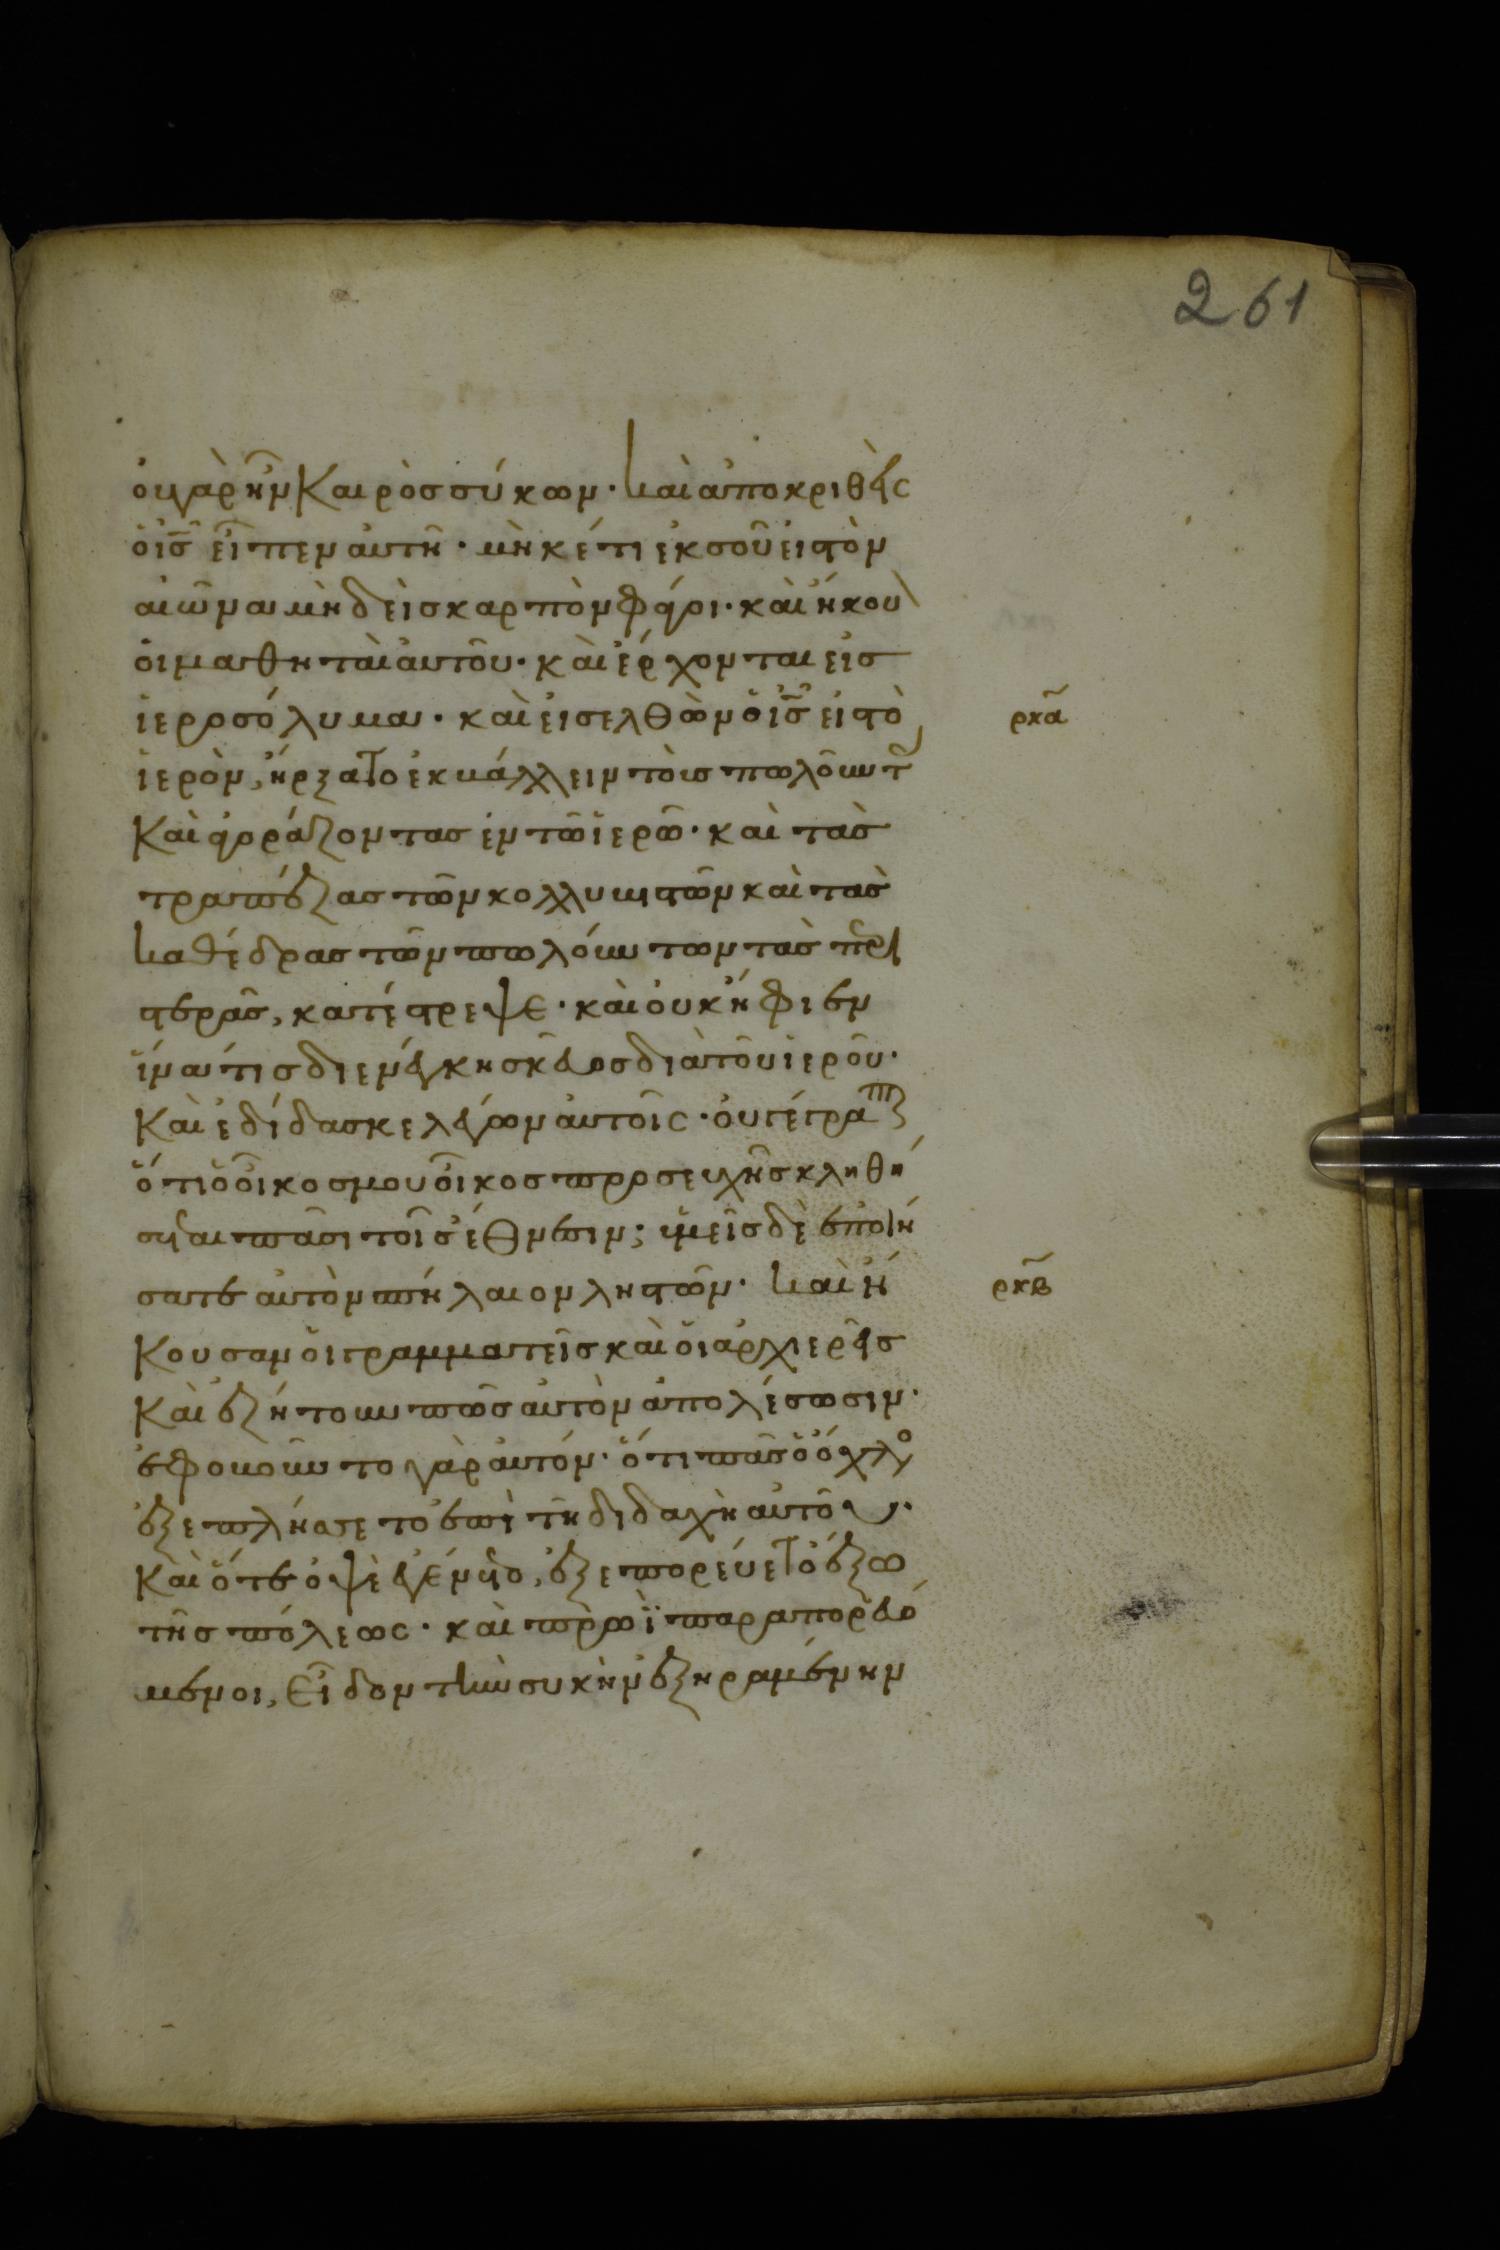 261
οὐ γὰρ ἦν καιρὸς σύκων· καὶ ἀποκριθεὶς
ὁ ις εἶπεν αὐτῆ· μὴκέτι ἐκ σοῦ εἰς τὸν
αἰῶνα μὴδεὶς καρπὸν φάγοι· καὶ ἤκου
οἱ μαθηταὶ αὐτοῦ· καὶ ἔρχονται εἰς
ἱεροσόλυμα· καὶ εἰσελθὼν ὁ ις εἰς τὸ
ρκα
ἱερὸν, ἤρξατο ἐκβάλλειν τοὺς πωλοῦντ
καὶ ἀγοράζοντας ἐν τῶ ἱερῶ· καὶ τὰς
τραπέζας τῶν κολλυβιστῶν καὶ τὰς
καθέδρας τῶν πωλούντων τὰς περι
στερὰς, κατέστρεψε· καὶ οὐκ ἤφιεν
ἵνα τίς διενέγκη σκεῦος διὰ τοῦ ἱεροῦ·
καὶ ἐδίδασκε λέγων αὐτοῖς· οὐ γέγραπτ
ὅτι ὁ οἶκός μου οἶκος προσευχῆς κληθή
σεται πᾶσι τοῖς ἔθνεσιν; ὑμεῖς δὲ ἐποιή
σατε αὐτὸν σπήλαιον ληστῶν· καὶ ἤ
ρκβ
κουσαν οἱ γραμματεῖς καὶ οἱ ἀρχιερεῖς
καὶ ἐζήτουν πῶς αὐτὸν ἀπολέσωσιν·
ἐφοβοῦντο γὰρ αὐτόν· ὅτι πᾶς ὁ ὄχλο
ἐξεπλήσσετο ἐπὶ τῆ διδαχὴ αὐτοῦ·
καὶ ὅτε ὀψὲ ἐγένετο, ἐξεπορεύετο ἔξω
τῆς πόλεως· καὶ πρωῒ παραπορευό
μενοι, εἶδον τὴν συκὴν ἐξηραμένην